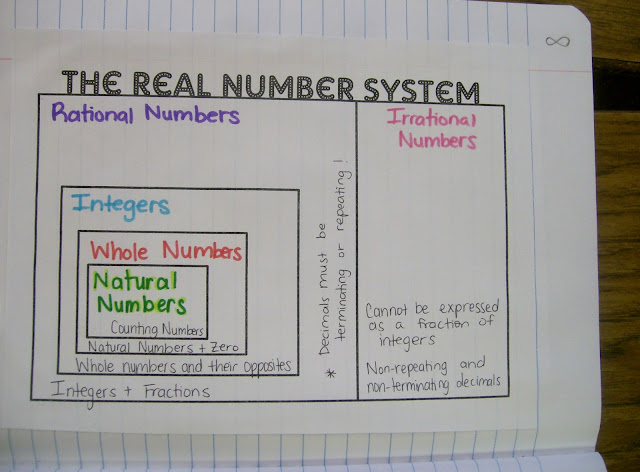 ∞
THE REAL NUMBER SYSTEM
Rational Numbers
Integers
Whole Numbers
Natural
Numbers
Counting Numbers
Natural Numbers + Zero
Whole numbers and their opposites
Integers + Fractions
* Decimals must be
terminating or repeating!
Irrational
Numbers
Cannot be expressed
as a fraction of
integers
Non-repeating and
non-terminating decimals